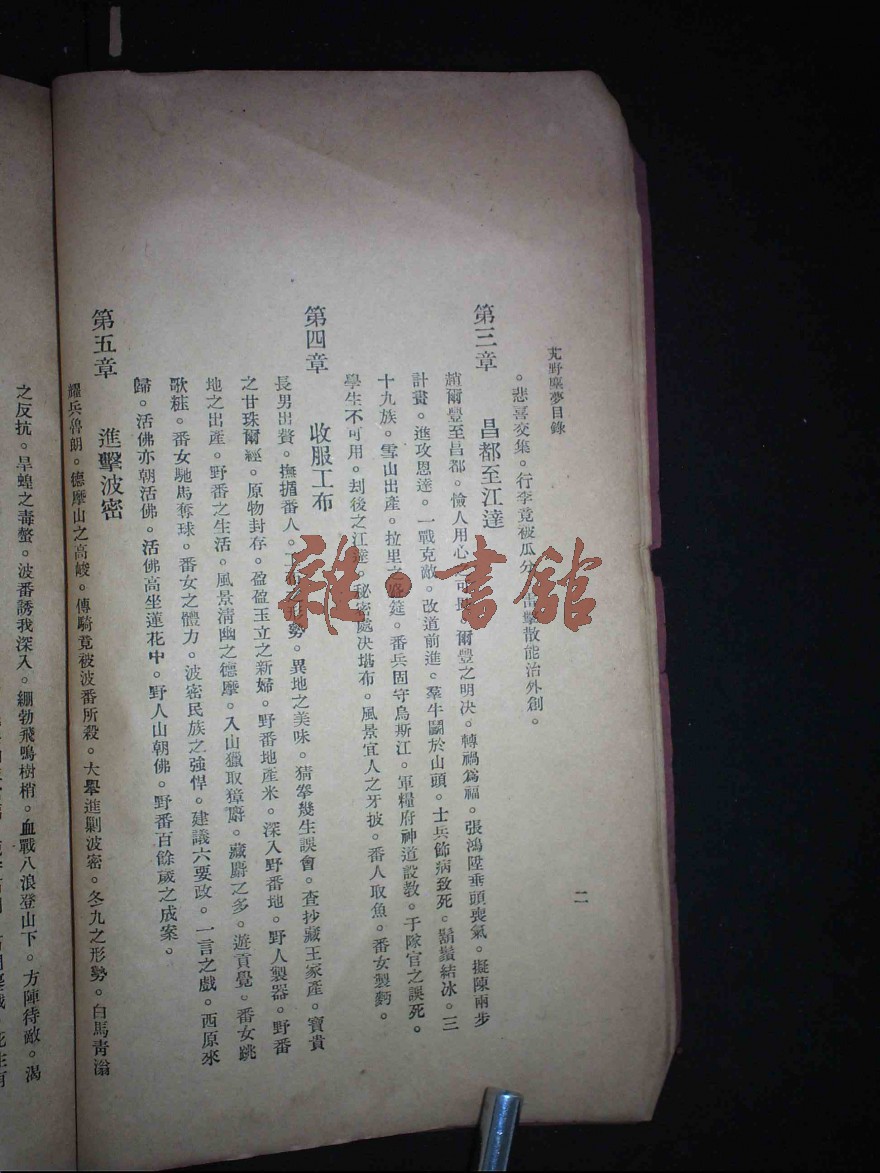 艽野塵夢目錄
二
。悲喜交集。行李竟被瓜分。擊散能治外創。
第三章　昌都至江達
趙爾豐至昌都。憸人用心之可畏。爾豐之明决。轉禍爲福。張鴻陞垂頭喪氣。擬陳兩步
計畫。進攻恩達。一戰克敵。改道前進。羣牛鬭於山頭。士兵飾病致死。鬍鬚結冰。三
十九族。雪山出產。拉里之筵。番兵固守烏斯江。軍糧府神道設教。于隊官之誤死。
學生不可用。刦後之江達。秘密處决堪布。風景宜人之牙披。番人取魚。番女製麪。
第四章　收服工布
長男出贅。撫揗番人。工布形勢。異地之美味。猜拳幾生誤會。查抄藏王家產。寶貴
之甘珠爾經。原物封存。盈盈玉立之新婦。野番地產米。深入野番地。野人製器。野番
地之出產。野番之生活。風景淸幽之德摩。入山獵取獐麝。藏麝之多。遊貢覺。番女跳
歌粧。番女馳馬奪球。番女之體力。波密民族之強悍。建議六要政。一言之戲。西原來
歸。活佛亦朝活佛。活佛高坐蓮花中。野人山朝佛。野番百餘歲之成案。
第五章　進擊波密
耀兵魯朗。德摩山之高峻。傳騎竟被波番所殺。大擧進剿波密。冬九之形勢。白馬青滃
之反抗。旱蝗之毒螫。波番誘我深入。綳勃飛鳴樹梢。血戰八浪登山下。方陣待敵。渴
雜·書館